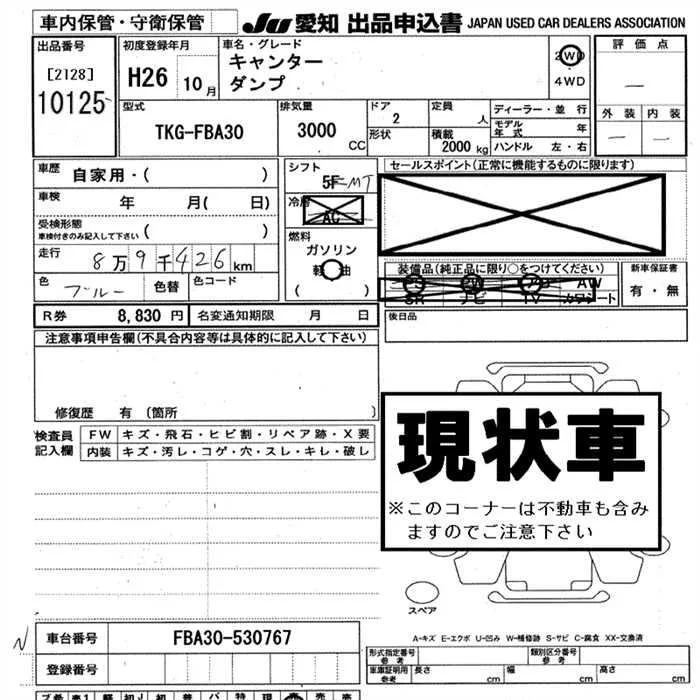 車内保管・守衛保管
JU 愛知 出品申込書 JAPAN USED CAR DEALERS ASSOCIATION
出品番号
[2128]
10125
初度登録年月
H26 10月
車名・グレード
キャンター
ダンプ
2WD
4WD
評価点
—
外装 内装
— —
型式
TKG-FBA30
排気量
3000 CC
ドア
2
形状
定員
人
積載
2000 kg
ディーラー・並行
モデル年式 年
ハンドル 左・右
車歴
自家用・( )
車検 年 月( 日)
受検形態
車検付きのみ記入して下さい ( )
走行
8万9千426km
色 ブルー 色替 色コード
シフト
5F MT
冷房
AC
燃料
ガソリン
軽油
( )
セールスポイント(正常に機能するものに限ります)
装備品(純正品に限り○をつけてください)
AW
SR ナビ TV カワシート
新車保証書
有・無
R券 8,830円 名変通知期限 月 日
後日品
注意事項申告欄(不具合内容等は具体的に記入して下さい)
修復歴 有 〔箇所 〕
検査員
記入欄
FW キズ・飛石・ヒビ割・リペア跡・X要
内装 キズ・汚レ・コゲ・穴・スレ・キレ・破レ
現状車
※このコーナーは不動車も含み
ますのでご注意下さい
スペア
A-キズ E-エクボ U-凹み W-補修跡 S-サビ C-腐食 XX-交換済
N
車台番号 FBA30-530767
登録番号
形式指定番号
参考
類別区分番号
参考
車庫証明用
参考
長さ cm 幅 cm 高さ cm